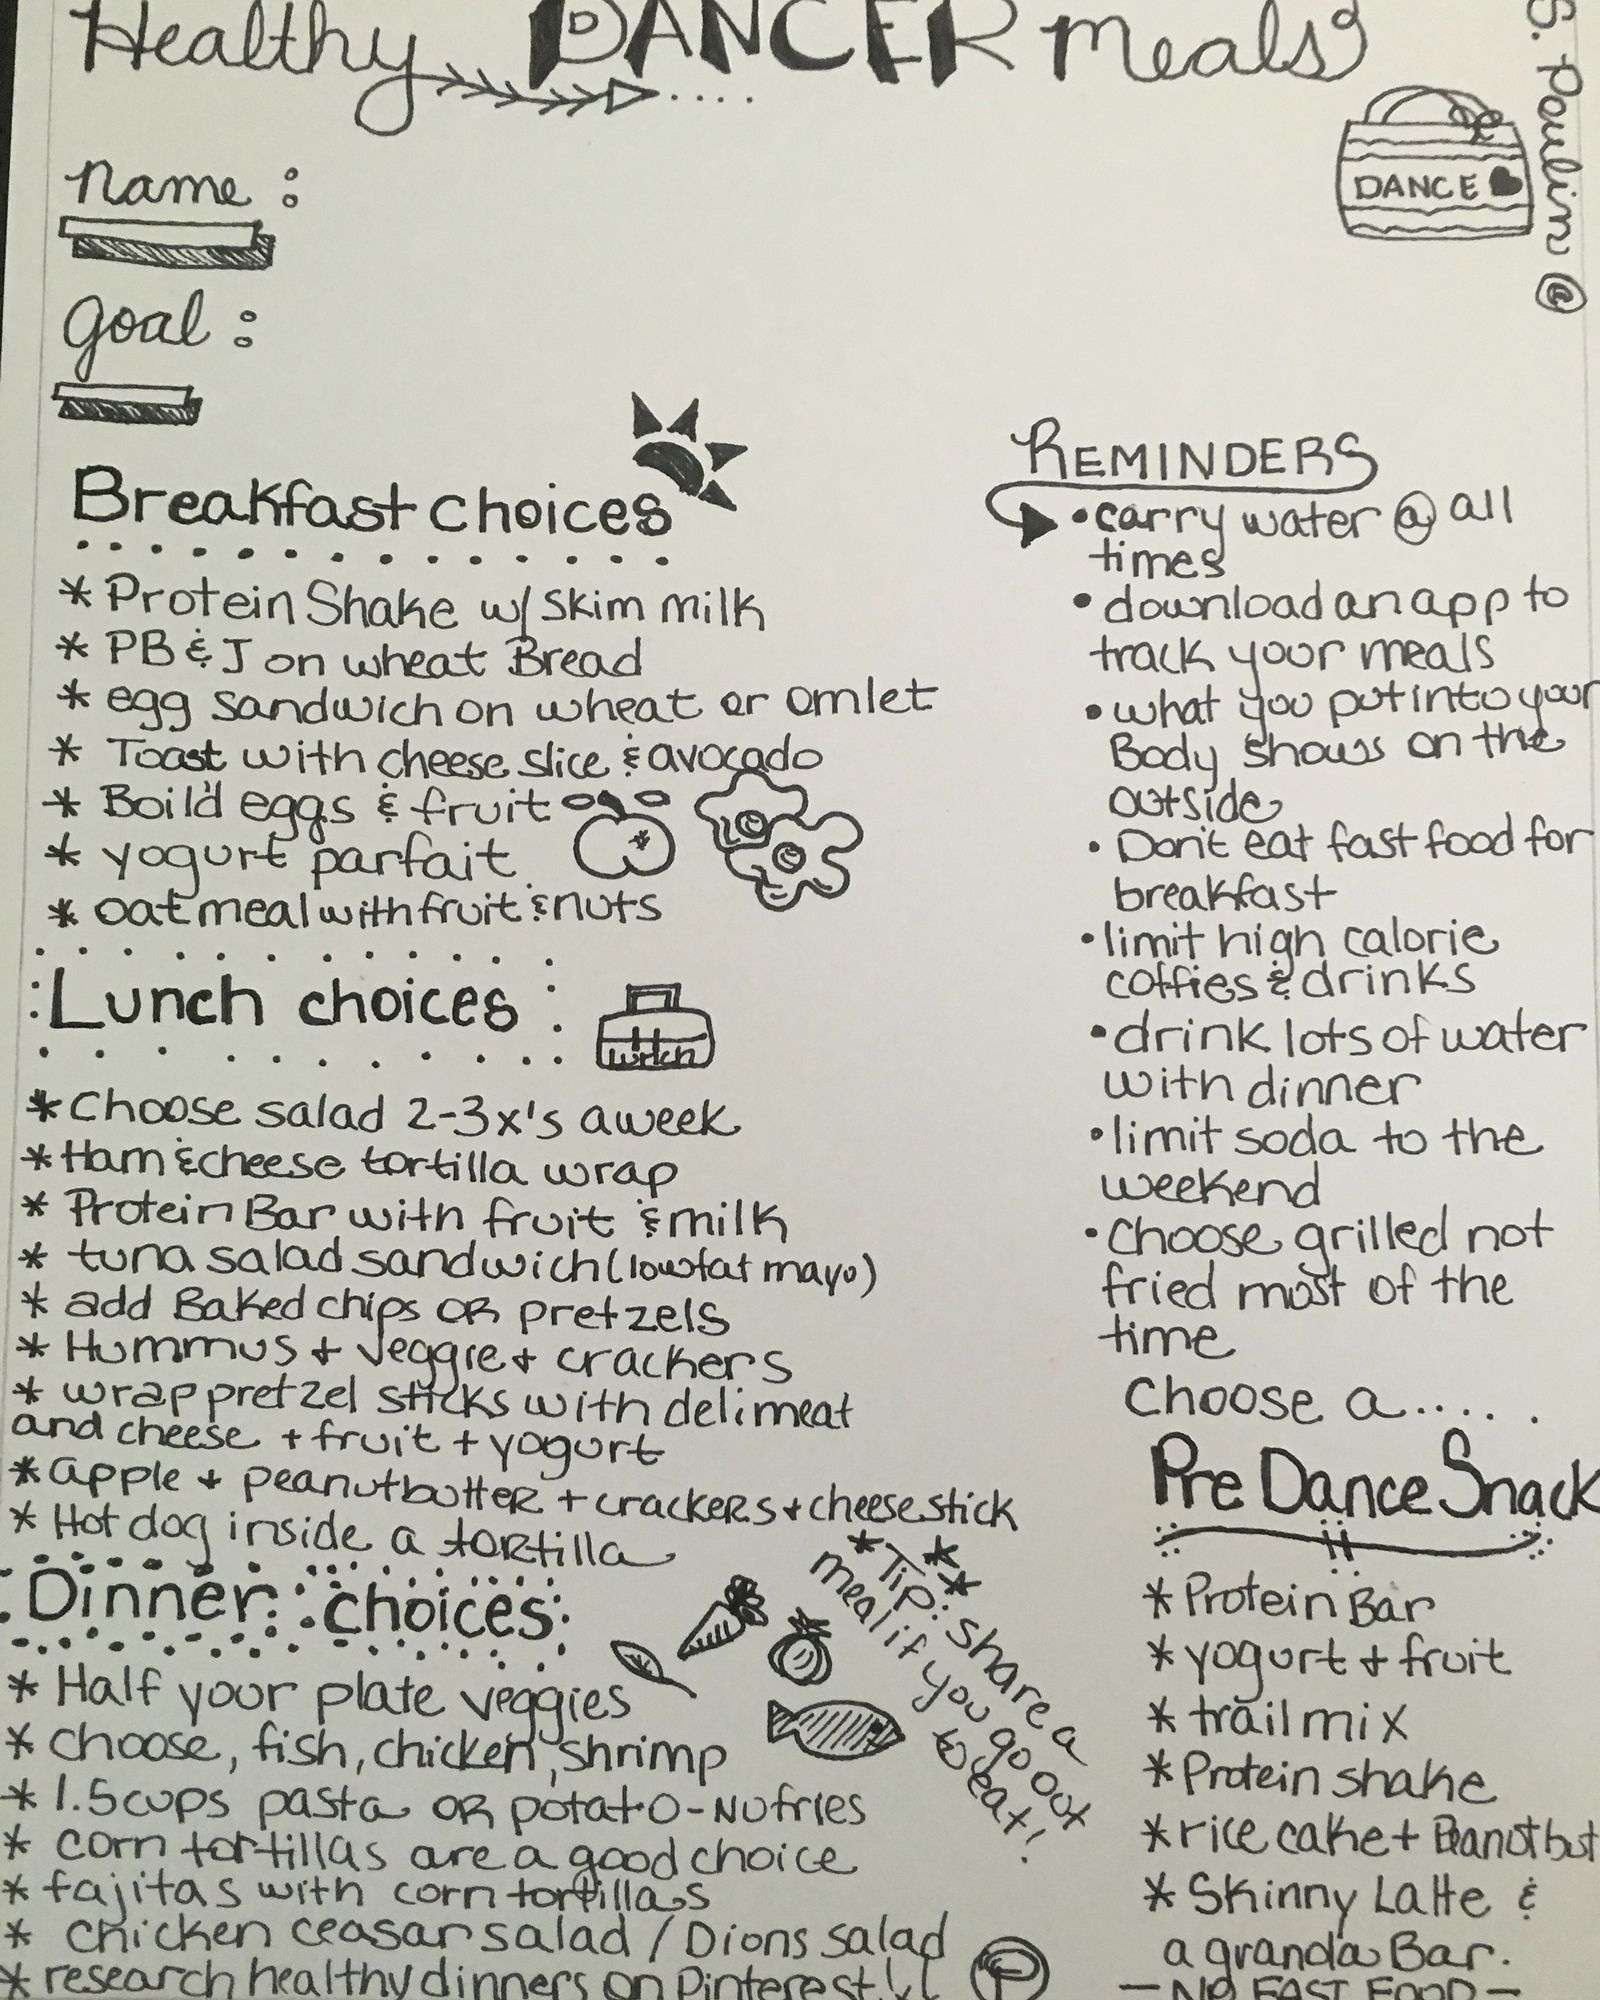 Healthy DANCER meals
S. Paulin @
DANCE
name :
goal :
Breakfast choices
* Protein Shake w/ skim milk
* PB & J on wheat Bread
* egg sandwich on wheat or omlet
* Toast with cheese slice & avocado
* Boil'd eggs & fruit
* yogurt parfait
* oatmeal with fruit & nuts
Lunch choices
* Choose salad 2-3x's a week
* Ham & cheese tortilla wrap
* Protein Bar with fruit & milk
* tuna salad sandwich (lowfat mayo)
* add Baked chips OR pretzels
* Hummus + veggie + crackers
* wrap pretzel sticks with deli meat
and cheese + fruit + yogurt
* apple + peanutbutter + crackers + cheese stick
* Hot dog inside a tortilla
Dinner choices
* Half your plate veggies
* choose, fish, chicken, shrimp
* 1.5 cups pasta OR potato - No fries
* corn tortillas are a good choice
* fajitas with corn tortillas
* chicken ceasar salad / Dions salad
* research healthy dinners on Pinterest!
* Tip: share a
meal if you go out
to eat!
REMINDERS
• carry water @ all
times
• download an app to
track your meals
• what you put into your
Body shows on the
outside
• Don't eat fast food for
breakfast
• limit high calorie
coffies & drinks
• drink lots of water
with dinner
• limit soda to the
weekend
• choose grilled not
fried most of the
time
Choose a.....
Pre Dance Snack
* Protein Bar
* yogurt + fruit
* trail mix
* Protein shake
* rice cake + Peanut but
* Skinny Latte &
a granda Bar.
- NO FAST FOOD -